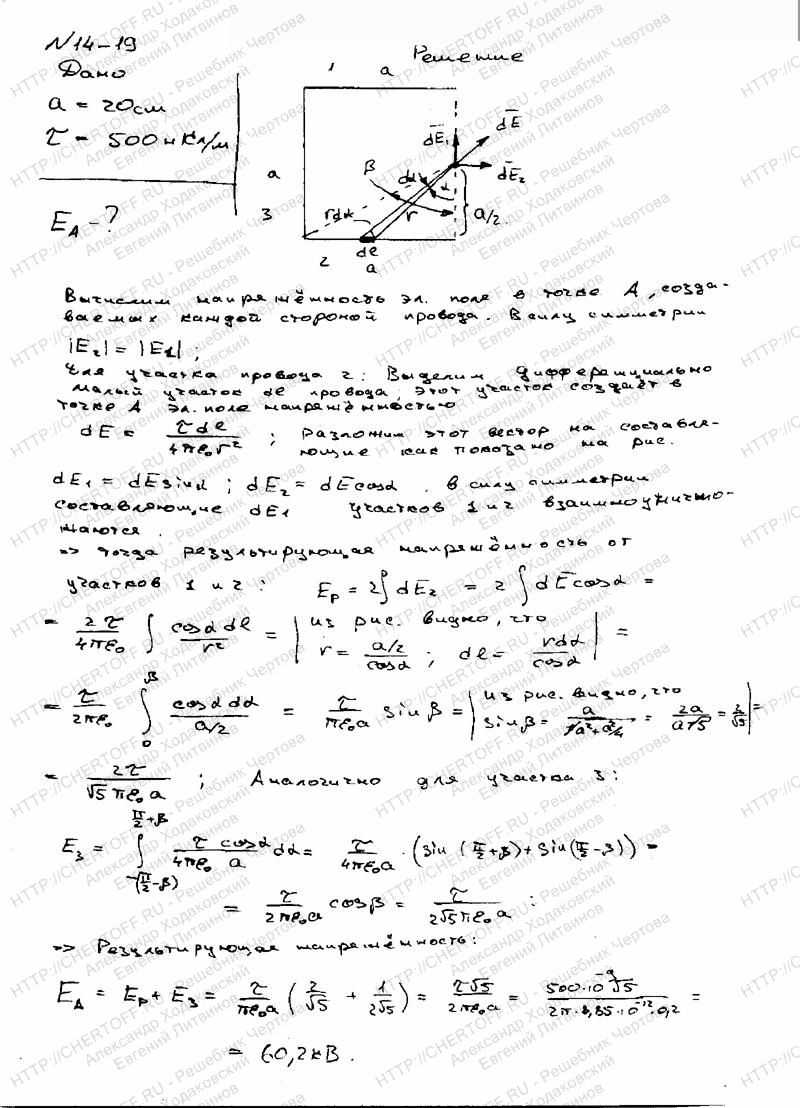 N 14-19
Дано
Решение
a = 20см
τ = 500 нКл/м
E_A - ?
1 a
a
3
2
a
dl
rdα
β
dα
α
r
a/2
dE₁
dE
dE₂
Вычислим напряжённость эл. поле в точке A, созда-
ваемых каждой стороной провода. В силу симметрии
|E₂| = |E₁| ;
Для участка провода 2: Выделим дифференциально
малый участок dl провода, этот участок создаёт в
точке A эл. поле напряжённостью
dE = τdl / 4πε₀r² ; разложим этот вектор на составля-
ющие как показано на рис.
dE₁ = dE sinα ; dE₂ = dE cosα . В силу симметрии
составляющие dE₁ участков 1 и 2 взаимоуничто-
жаются.
=> тогда результирующая напряжённость от
участков 1 и 2 : E_p = 2∫dE₂ = 2∫dE cosα =
= 2τ/4πε₀ ∫ cosα dl / r² = | из рис. видно, что r = (a/2)/cosα ; dl = rdα/cosα | =
= τ/2πε₀ ∫₀^β cosα dα / (a/2) = τ/πε₀a sinβ = | из рис. видно, что sinβ = a/√(a²+a²/4) = 2a/a√5 = 2/√5 | =
= 2τ / √5 πε₀a ; Аналогично для участка 3:
E₃ = ∫_{-(π/2-β)}^{π/2+β} τ cosα / 4πε₀a dα = τ/4πε₀a · (sin(π/2+β) + sin(π/2-β)) =
= τ/2πε₀a cosβ = τ / 2√5 πε₀a :
=> Результирующая напряжённость:
E_A = E_p + E₃ = τ/πε₀a (2/√5 + 1/2√5) = τ√5 / 2πε₀a = 500·10⁻⁹√5 / 2π·8,85·10⁻¹²·0,2 =
= 60,2кВ.
HTTP://CHERTOFF.RU - Решебник Чертова
Александр Ходаковский
Евгений Литвинов